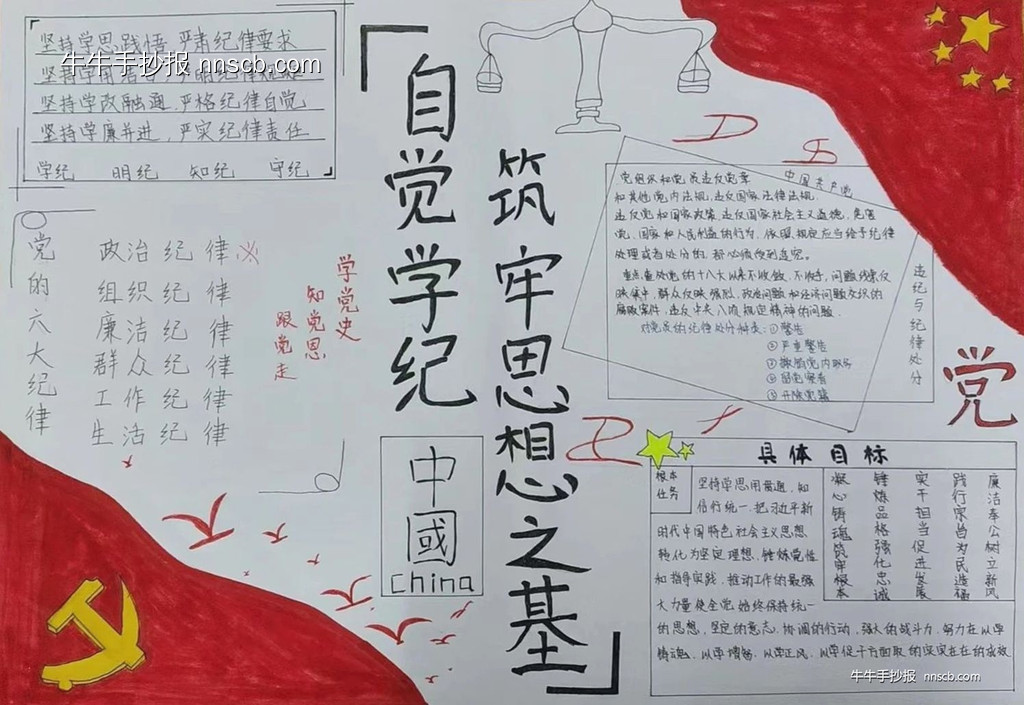 坚持学思践悟,严肃纪律要求
牛牛手抄报 nnscb.com
坚持学改融通,严格纪律自觉
坚持学廉并进,严实纪律责任
学纪 明纪 知纪 守纪
「自觉学纪
筑牢思想之基」
党的六大纪律
政治纪律
组织纪律
廉洁纪律
群众纪律
工作纪律
生活纪律
学党史
知党恩
跟党走
中國
China
中国共产党
党组织和党员违反党章
和其他党内法规,违反国家法律法规,
违反党和国家政策,违反国家社会主义道德,危害
党、国家和人民利益的行为,依照规定应当给予纪律
处理或者处分的,都必须受到追究。
重点查处党的十八大以来不收敛、不收手,问题线索反
映集中,群众反映强烈,政治问题和经济问题交织的
腐败案件,违反中央八项规定精神的问题.
对党员的纪律处分种类:①警告
②严重警告
③撤销党内职务
④留党察看
⑤开除党籍
违纪与纪律处分
党
具体目标
根本
任务
坚持学思用贯通、知
信行统一,把习近平新
时代中国特色社会主义思想
转化为坚定理想、锤炼党性
和指导实践,推动工作的最强
大力量使全党始终保持统一
的思想,坚定的意志,协调的行动,强大的战斗力,努力在以学
铸魂,以学增智,以学正风,以学促干方面取的实实在在的成效
凝心铸魂筑牢根本
锤炼品格强化忠诚
实干担当促进发展
践行宗旨为民造福
廉洁奉公树立新风
牛牛手抄报 nnscb.com